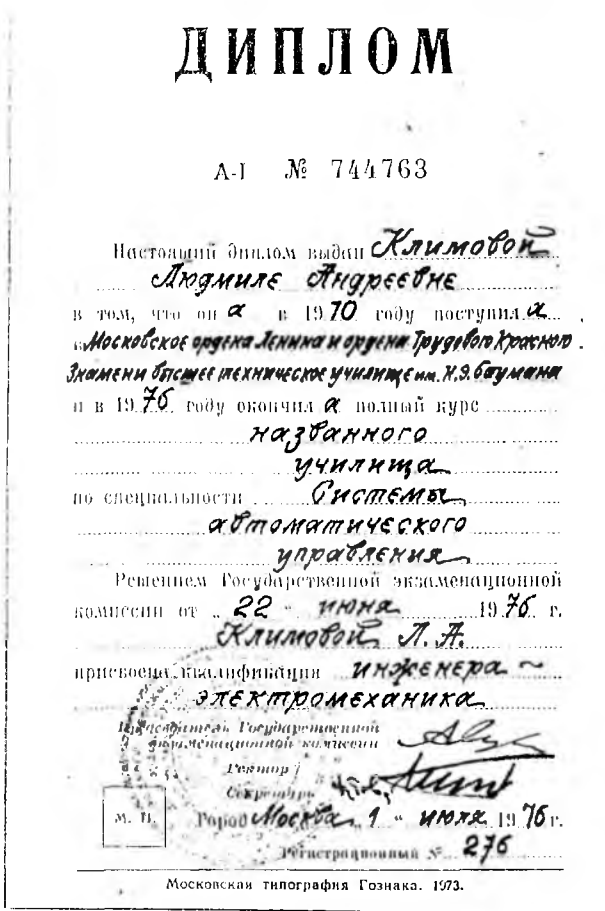 ДИПЛОМ
А-I № 744763
Настоящий диплом выдан Климовой
Людмиле Андреевне
в том, что он а в 1970 году поступил а
в Московское ордена Ленина и ордена Трудового Красного
Знамени высшее техническое училище им. Н.Э. Баумана
и в 1976 году окончил а полный курс
названного
училища
по специальности Системы
автоматического
управления
Решением Государственной экзаменационной
комиссии от „ 22 “ июня 1976 г.
Климовой Л. А.
присвоена квалификация инженера ~
электромеханика
Председатель Государственной
экзаменационной комиссии
Ректор
Секретарь
М. П.
Город Москва 1 “ июля 1976 г.
Регистрационный № 276
Московская типография Гознака. 1973.